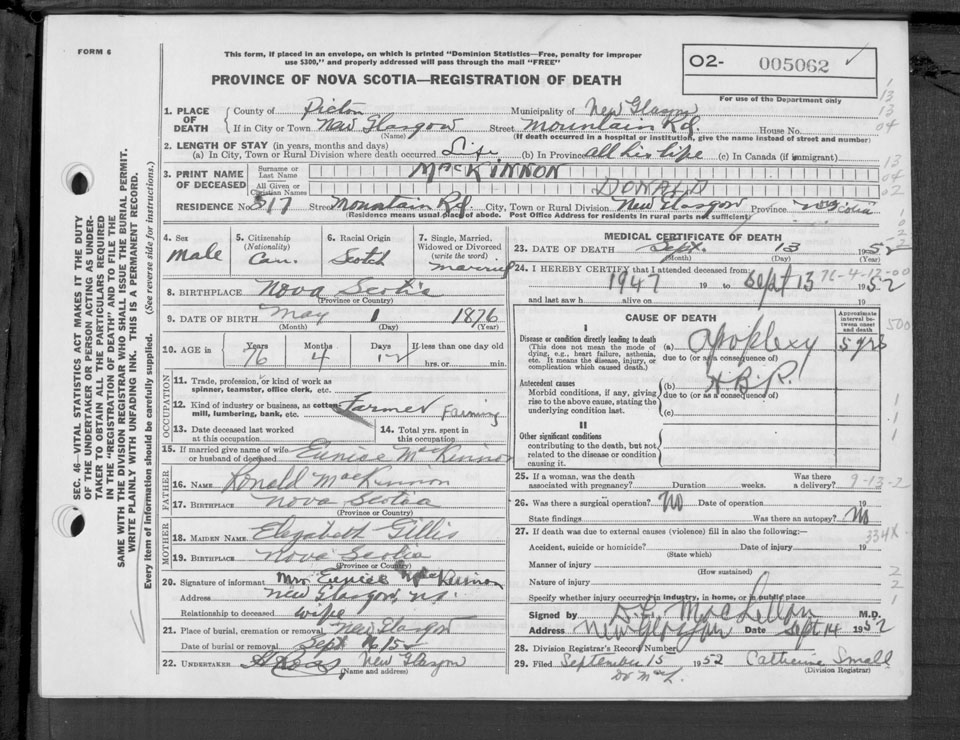 FORM 6
This form, if placed in an envelope, on which is printed "Dominion Statistics—Free, penalty for improper
use $300," and properly addressed will pass through the mail "FREE"
PROVINCE OF NOVA SCOTIA—REGISTRATION OF DEATH
O2- 005062
For use of the Department only
SEC. 46—VITAL STATISTICS ACT MAKES IT THE DUTY
OF THE UNDERTAKER OR PERSON ACTING AS UNDER-
TAKER TO OBTAIN ALL THE PARTICULARS REQUIRED
IN THE "REGISTRATION OF DEATH" AND TO FILE THE
SAME WITH THE DIVISION REGISTRAR WHO SHALL ISSUE THE BURIAL PERMIT.
WRITE PLAINLY WITH UNFADING INK. THIS IS A PERMANENT RECORD.
Every item of information should be carefully supplied. (See reverse side for instructions.)
1. PLACE OF DEATH
County of Pictou Municipality of New Glasgow
If in City or Town New Glasgow Street Mountain Rd. House No.
(Name) (If death occurred in a hospital or institution, give the name instead of street and number)
2. LENGTH OF STAY (in years, months and days)
(a) In City, Town or Rural Division where death occurred Life (b) In Province all his life (c) In Canada (if immigrant)
3. PRINT NAME OF DECEASED
Surname or Last Name MACKINNON
All Given or Christian Names DONALD
RESIDENCE No. 517 Street Mountain Rd City, Town or Rural Division New Glasgow Province N. Scotia
(Residence means usual place of abode. Post Office Address for residents in rural parts not sufficient)
4. Sex Male
5. Citizenship (Nationality) Can.
6. Racial Origin Scotch
7. Single, Married, Widowed or Divorced (write the word) married
8. BIRTHPLACE Nova Scotia
(Province or Country)
9. DATE OF BIRTH May 1 1876
(Month) (Day) (Year)
10. AGE in Years 76 Months 4 Days 12 If less than one day old
hrs. or min.
OCCUPATION
11. Trade, profession, or kind of work as
spinner, teamster, office clerk, etc.
12. Kind of industry or business, as cotton
mill, lumbering, bank, etc. Farmer Farming
13. Date deceased last worked
at this occupation
14. Total yrs. spent in
this occupation
15. If married give name of wife
or husband of deceased Eunice MacKinnon
FATHER
16. Name Ronald MacKinnon
17. Birthplace Nova Scotia
(Province or Country)
MOTHER
18. MAIDEN NAME Elizabeth Gillis
19. Birthplace Nova Scotia
(Province or Country)
20. Signature of informant Mrs Eunice MacKinnon
Address New Glasgow, N.S.
Relationship to deceased wife
21. Place of burial, cremation or removal New Glasgow
Date of burial or removal Sept 16
22. UNDERTAKER New Glasgow
(Name and address)
MEDICAL CERTIFICATE OF DEATH
23. DATE OF DEATH Sept. 13 1952
(Month) (Day) (Year)
24. I HEREBY CERTIFY that I attended deceased from:
1947 19 to Sept 13 1952
76-4-12-00
and last saw h alive on 19
CAUSE OF DEATH
Approximate interval between onset and death
I
Disease or condition directly leading to death
(This does not mean the mode of
dying, e.g., heart failure, asthenia,
etc. It means the disease, injury, or
complication which caused death.)
(a) Apoplexy 5 yrs
due to (or as a consequence of)
Antecedent causes
Morbid conditions, if any, giving
rise to the above cause, stating the
underlying condition last.
(b) H.B.P.
due to (or as a consequence of)
(c)
II
Other significant conditions
contributing to the death, but not
related to the disease or condition
causing it.
25. If a woman, was the death
associated with pregnancy? Duration weeks. Was there
a delivery? 9-13-2
26. Was there a surgical operation? No Date of operation 19
State findings Was there an autopsy? No
27. If death was due to external causes (violence) fill in also the following:—
334X
Accident, suicide or homicide? Date of injury 19
(State which)
Manner of injury
(How sustained)
Nature of injury
Specify whether injury occurred in industry, in home, or in public place
Signed by MacLellan M.D.
Address New Glasgow Date Sept 14 1952
28. Division Registrar's Record Number
29. Filed September 15 1952 Catherine Small
(Division Registrar)